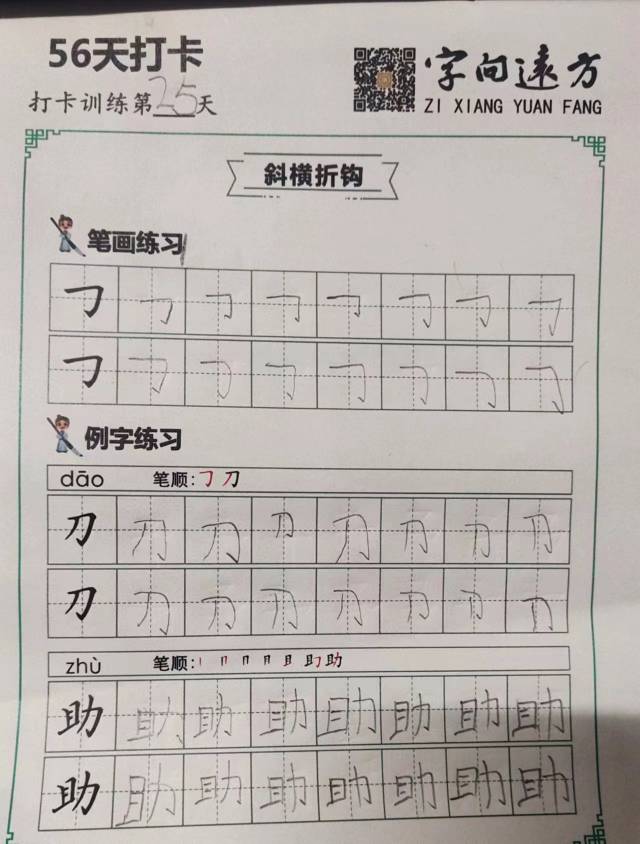 56天打卡
打卡训练第25天
字向远方
ZI XIANG YUAN FANG
斜横折钩
笔画练习
㇆ ㇆ ㇆ ㇆ ㇆ ㇆ ㇆ ㇆
㇆ ㇆ ㇆ ㇆ ㇆ ㇆ ㇆ ㇆
例字练习
dāo 笔顺:㇆ 刀
刀 刀 刀 刀 刀 刀 刀 刀
刀 刀 刀 刀 刀 刀 刀 刀
zhù 笔顺:丨 冂 冃 月 且 助 助
助 助 助 助 助 助 助 助
助 助 助 助 助 助 助 助